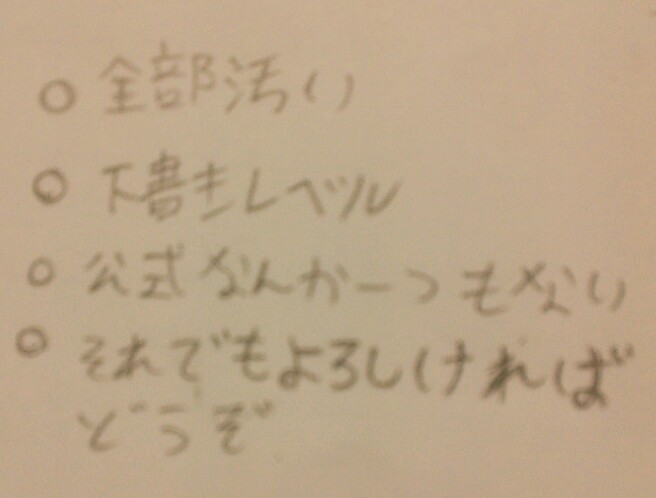 ○ 全部汚い
○ 下書きレベル
○ 公式なんか一つもない
○ それでもよろしければ
どうぞ